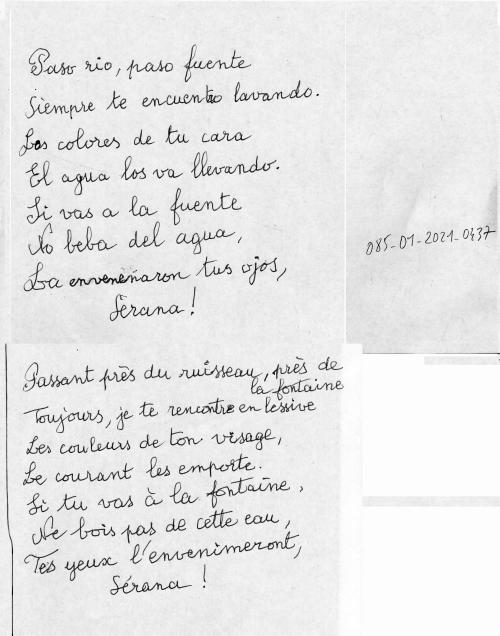 Paso rio, paso fuente
Siempre te encuentro lavando.
Los colores de tu cara
El agua los va llevando.
Si vas a la fuente
No beba del agua,
La envenenaron tus ojos,
Sèrana !
085-01-2021-0437
Passant près du ruisseau, près de
la fontaine
Toujours, je te rencontre en lessive
Les couleurs de ton visage,
Le courant les emporte.
Si tu vas à la fontaine,
Ne bois pas de cette eau,
Tes yeux l'envenimeront,
Sérana !